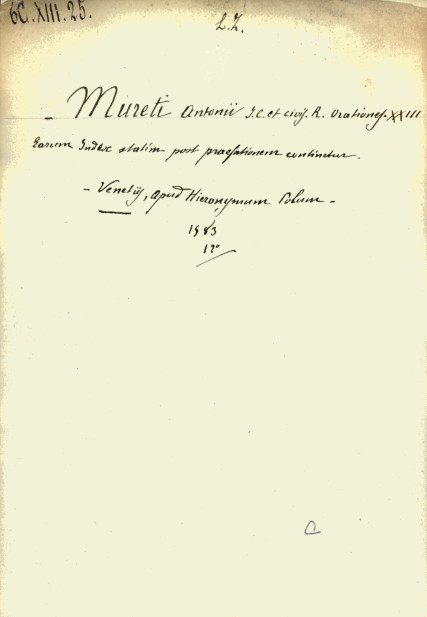 6C.XIII.25.
L.Z.
- Mureti Antonii J.C. et civis. R. Orationes. XXIII
Earum Index statim post praefationem continetur.
- Venetijs, apud Hieronymum Polum -
1583
12º